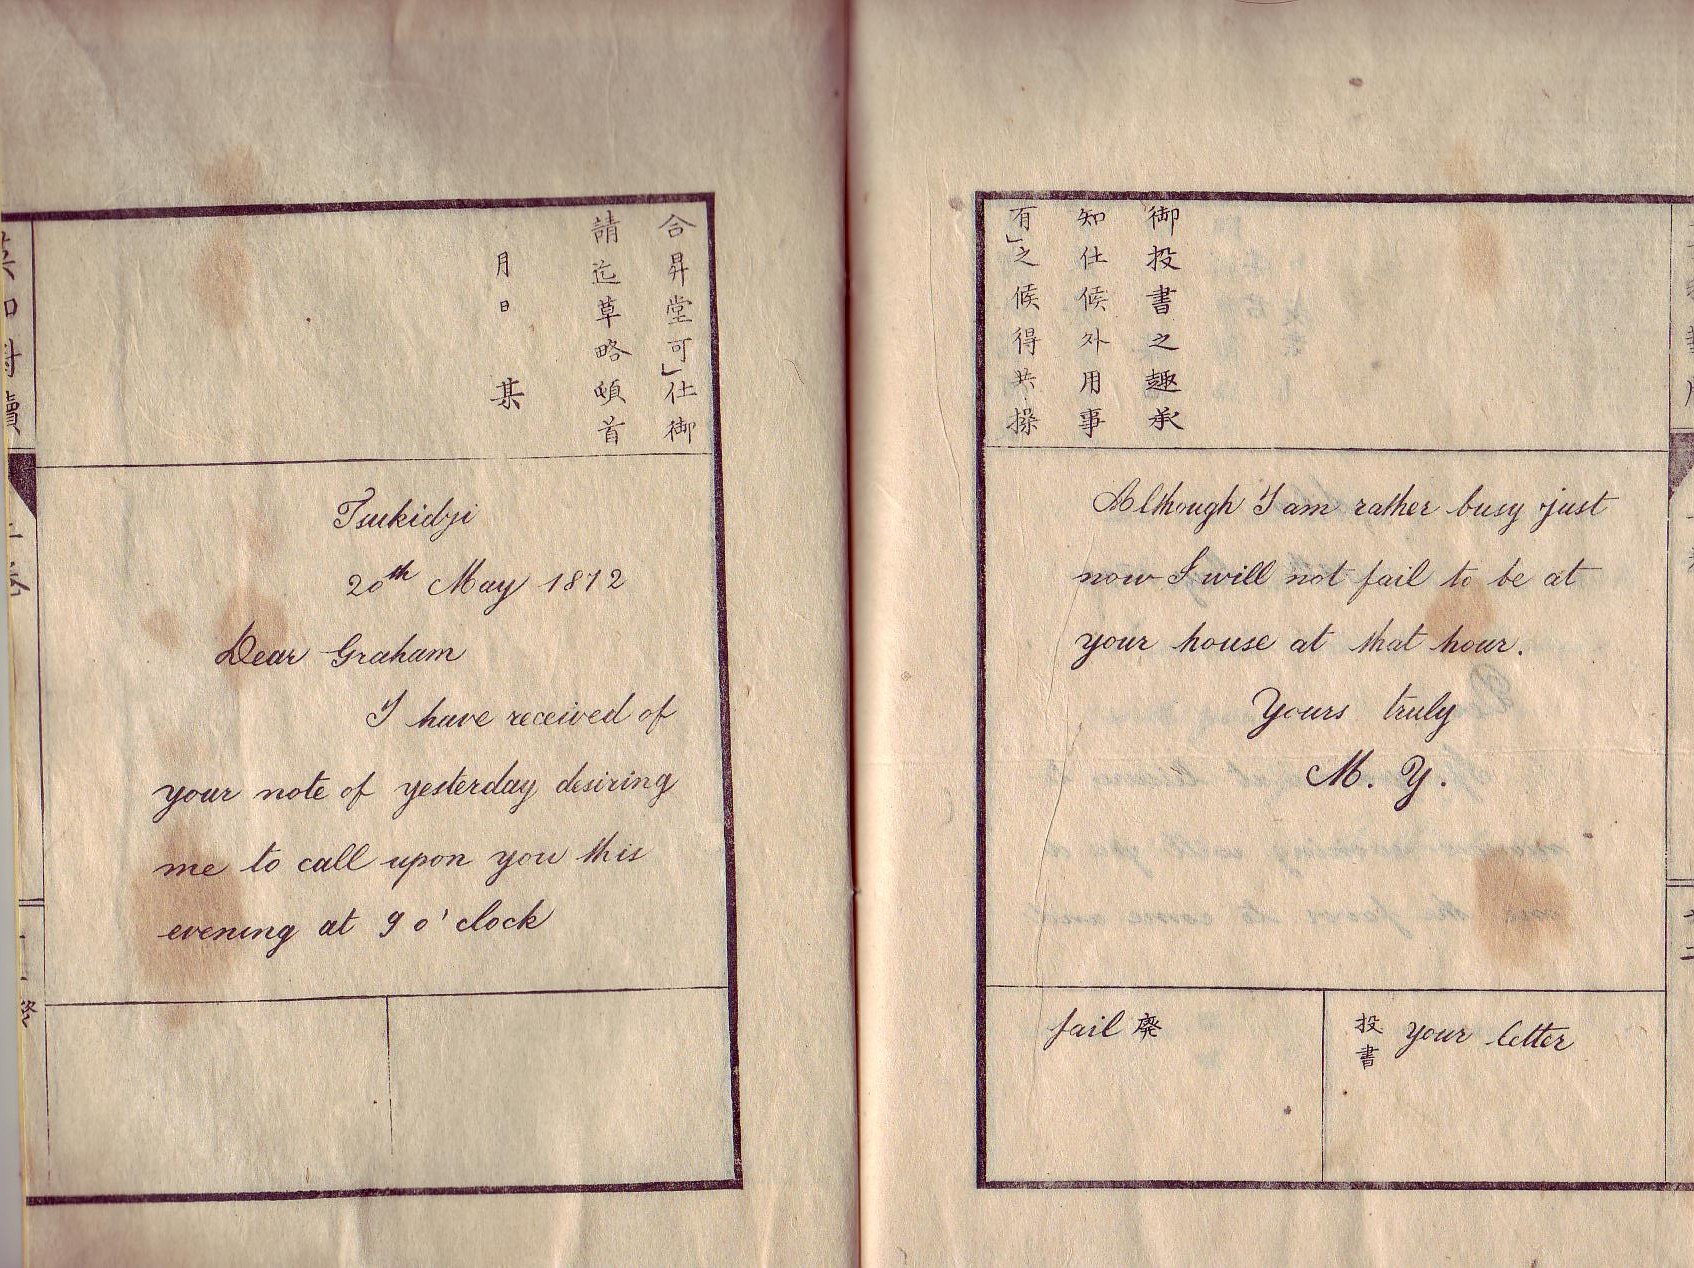 合昇堂可」仕御
請迄草略頓首
月日 某
Tsukidji
20th May 1872
Dear Graham
I have received of
your note of yesterday desiring
me to call upon you this
evening at 9 o'clock
御投書之趣承
知仕候外用事
有」之候得共操
Although I am rather busy just
now I will not fail to be at
your house at that hour.
Yours truly
M. Y.
fail 廃
投書 your letter